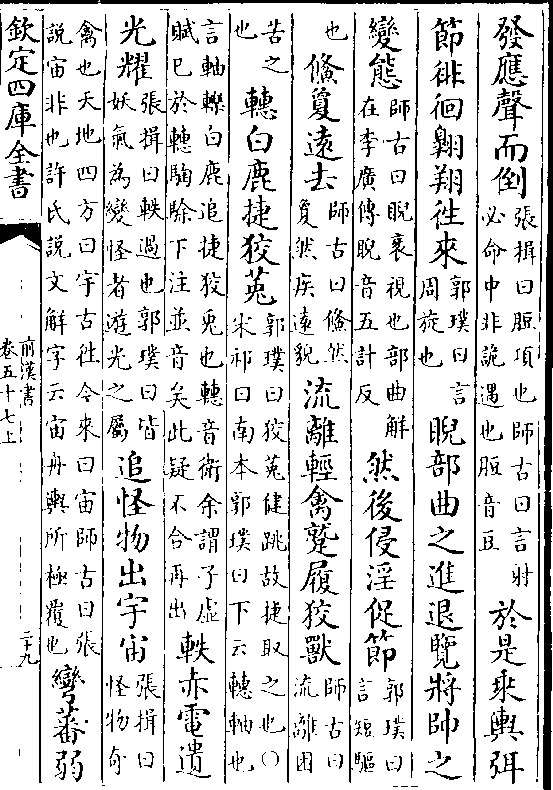 發應聲而倒張揖曰脰項也師古曰言射必命中非詭遇也脰音豆於是乘輿弭
節徘徊翺翔徃來郭璞曰言周旋也睨部曲之進退覽將帥之
變態師古曰睨衺視也部曲解在李廣傳睨音五計反然後侵淫促節郭璞曰言短驅
也儵敻遠去師古曰儵然敻然疾遠貌流離輕禽蹵履狡獸師古曰流離困
苦之也轊白鹿捷狡菟郭璞曰狡菟健跳故捷取之也○宋祁曰南本郭璞曰下云轊軸也
言軸轢白鹿追捷狡兎也轊音衛余謂子虛賦已於轊騊駼下注並音矣此疑不合再出軼赤電遺
光耀張揖曰軼過也郭璞曰皆妖氣為變怪者遊光之屬追怪物出宇宙張揖曰怪物奇
禽也天地四方曰宇古徃今來曰宙師古曰張說宙非也許氏說文解字云宙舟輿所極覆也彎蕃弱
欽定四庫全書
前漢書
卷五十七上
二十九